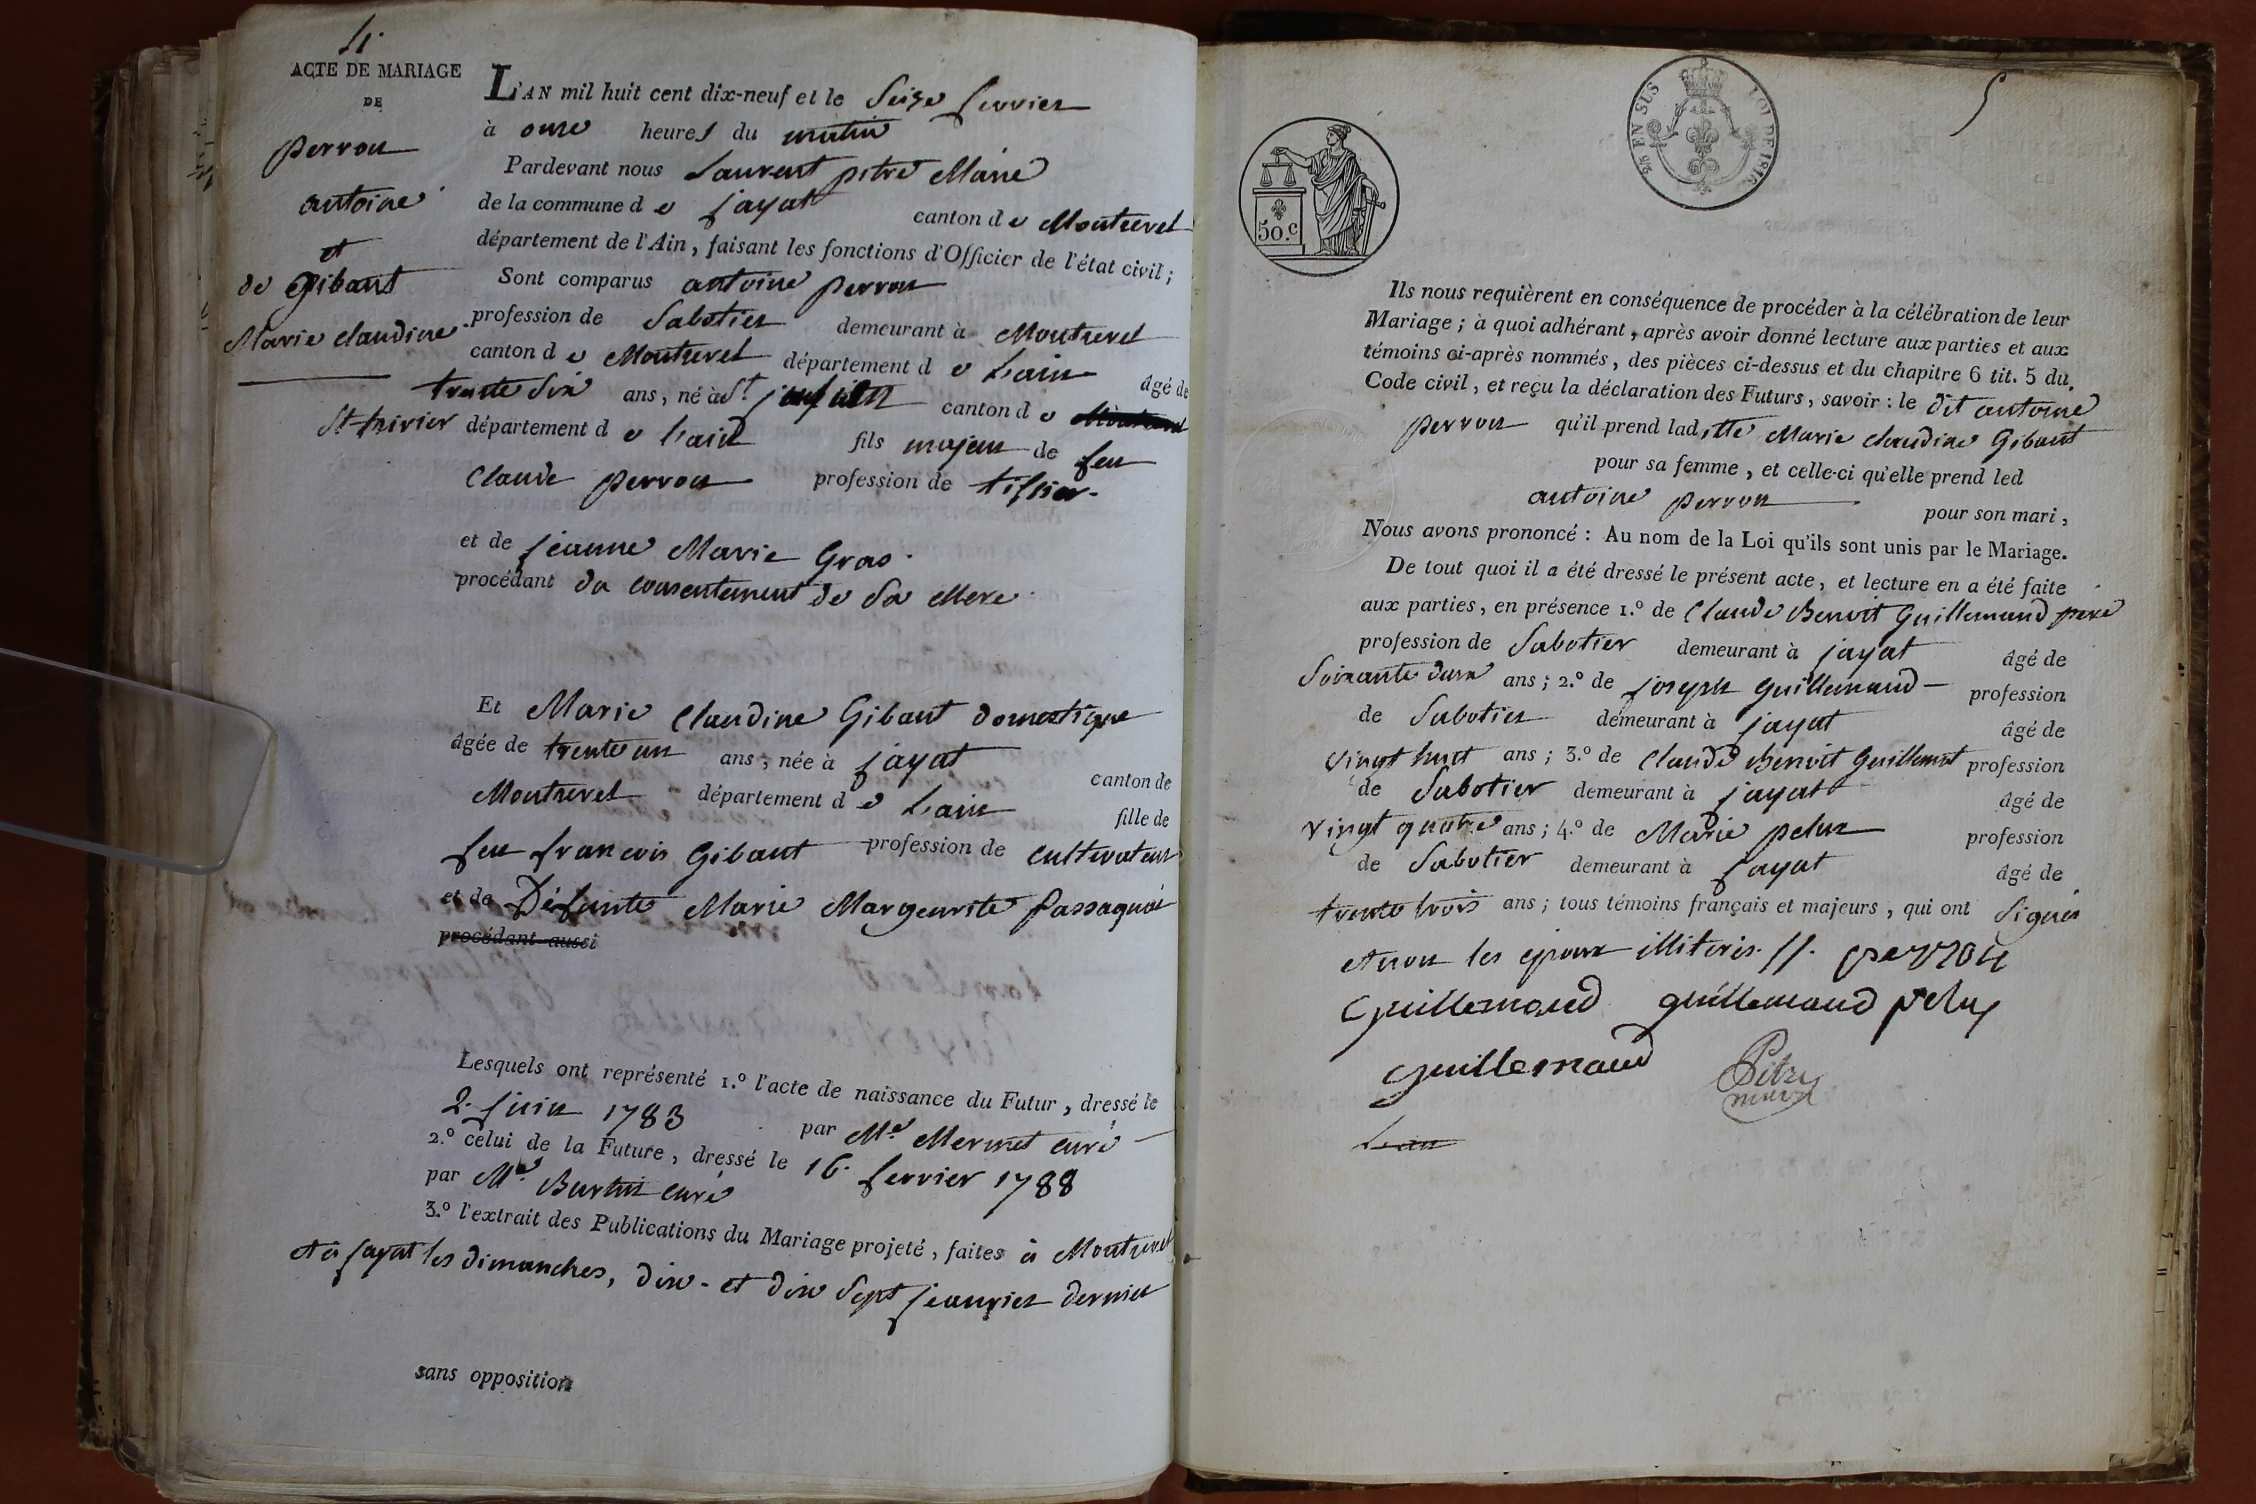 4.
ACTE DE MARIAGE
DE
perron
antoine
et
de Gibant
Marie claudine
L'AN mil huit cent dix-neuf et le Seize fevrier
à onze heures du matin
Pardevant nous Laurent pitre Maire
de la commune de jayat canton de Montrevel
département de l'Ain, faisant les fonctions d'Officier de l'état civil;
Sont comparus antoine perron
profession de Sabotier demeurant à Montrevel
canton de Montrevel département de L'ain âgé de
trente Six ans, né à St. canton de Montrevel
St trivier département de L'ain fils majeur de feu
Claude perron profession de tissier.
et de jeanne Marie Gras.
procédant du consentement de Sa Mere
Et Marie Claudine Gibant domestique
âgée de trente un ans, née à jayat canton de
Montrevel département de L'ain fille de
feu francois Gibant profession de cultivateur
et de Défunte Marie Margeurite
procédant aussi
Lesquels ont représenté 1.º l'acte de naissance du Futur, dressé le
2. juin 1783 par Me. Mermet curé
2.º celui de la Future, dressé le 16. fevrier 1788
par Me. curé
3.º l'extrait des Publications du Mariage projeté, faites à Montrevel
et à jayat les dimanches, dix - et dix Sept jeanvier dernier
sans opposition
5
EN SUS LOI DE 1816
50.c
Ils nous requièrent en conséquence de procéder à la célébration de leur
Mariage; à quoi adhérant, après avoir donné lecture aux parties et aux
témoins ci-après nommés, des pièces ci-dessus et du chapitre 6 tit. 5 du
Code civil, et reçu la déclaration des Futurs, savoir: le dit antoine
perron qu'il prend laditte Marie claudine Gibant
pour sa femme, et celle-ci qu'elle prend led
antoine perron pour son mari,
Nous avons prononcé: Au nom de la Loi qu'ils sont unis par le Mariage.
De tout quoi il a été dressé le présent acte, et lecture en a été faite
aux parties, en présence 1.º de Claude Benoit Guillemaud pere
profession de Sabotier demeurant à jayat âgé de
Soixante deux ans; 2.º de joseph Guillemaud profession
de Sabotier demeurant à jayat âgé de
vingt huit ans; 3.º de Claude Benoit Guillemot profession
de Sabotier demeurant à jayat âgé de
vingt quatre ans; 4.º de Marie pelux profession
de Sabotier demeurant à jayat âgé de
trente trois ans; tous témoins français et majeurs, qui ont Signés
et non les epoux illiterés.
Guillemaud guillemaud pelux
guillemaud Pitre
maire
L'an